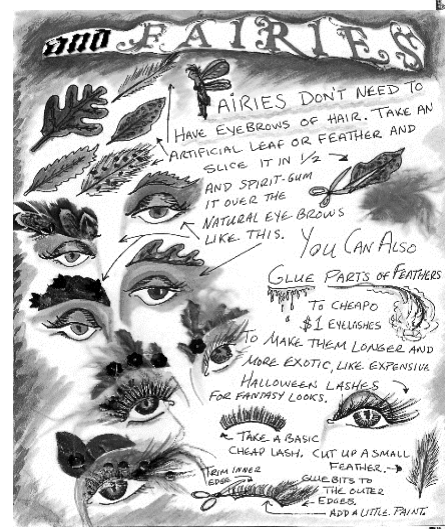 and FAIRIES
FAIRIES DON'T NEED TO
HAVE EYEBROWS OF HAIR. TAKE AN
ARTIFICIAL LEAF OR FEATHER AND
SLICE IT IN 1/2
AND SPIRIT-GUM
IT OVER THE
NATURAL EYE BROWS
LIKE THIS.
YOU CAN ALSO
GLUE PARTS OF FEATHERS
TO CHEAPO
$1 EYELASHES
TO MAKE THEM LONGER AND
MORE EXOTIC, LIKE EXPENSIVE
HALLOWEEN LASHES
FOR FANTASY LOOKS.
TAKE A BASIC
CHEAP LASH.
CUT UP A SMALL
FEATHER.
TRIM INNER
EDGE
GLUE BITS TO
THE OUTER
EDGES.
ADD A LITTLE PAINT.